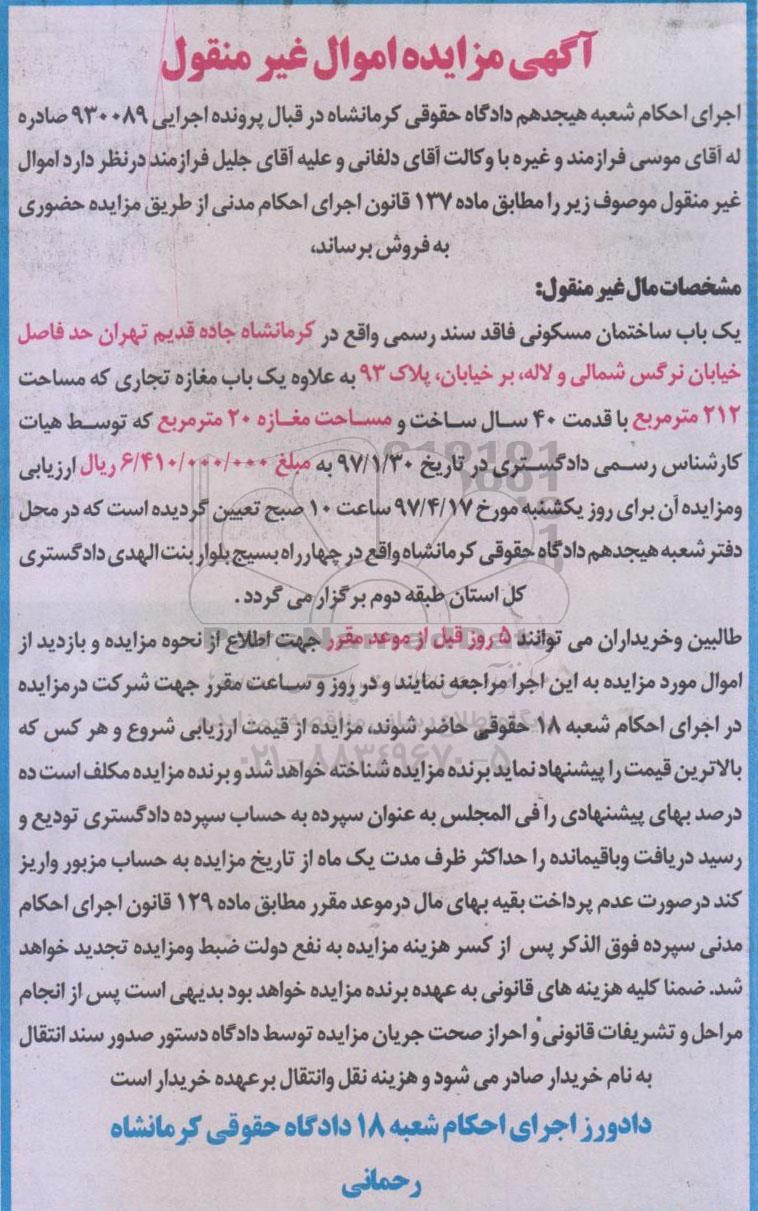 آگهی مزایده اموال غیر منقول
اجرای احکام شعبه هیجدهم دادگاه حقوقی کرمانشاه در قبال پرونده اجرایی ۹۳۰۰۸۹ صادره
له آقای موسی فرازمند و غیره با وکالت آقای دلفانی و علیه آقای جلیل فرازمند درنظر دارد اموال
غیر منقول موصوف زیر را مطابق ماده ۱۳۷ قانون اجرای احکام مدنی از طریق مزایده حضوری
به فروش برساند،
مشخصات مال غیر منقول:
یک باب ساختمان مسکونی فاقد سند رسمی واقع در کرمانشاه جاده قدیم تهران حد فاصل
خیابان نرگس شمالی و لاله، بر خیابان، پلاک ۹۳ به علاوه یک باب مغازه تجاری که مساحت
۲۱۲ مترمربع با قدمت ۴۰ سال ساخت و مساحت مغازه ۲۰ مترمربع که توسط هیات
کارشناس رسمی دادگستری در تاریخ ۹۷/۱/۳۰ به مبلغ ۶/۴۱۰/۰۰۰/۰۰۰ ریال ارزیابی
ومزایده آن برای روز یکشنبه مورخ ۹۷/۴/۱۷ ساعت ۱۰ صبح تعیین گردیده است که در محل
دفتر شعبه هیجدهم دادگاه حقوقی کرمانشاه واقع در چهارراه بسیج بلوار بنت الهدی دادگستری
کل استان طبقه دوم برگزار می گردد .
طالبین وخریداران می توانند ۵ روز قبل از موعد مقرر جهت اطلاع از نحوه مزایده و بازدید از
اموال مورد مزایده به این اجرا مراجعه نمایند و در روز و ساعت مقرر جهت شرکت درمزایده
در اجرای احکام شعبه ۱۸ حقوقی حاضر شوند، مزایده از قیمت ارزیابی شروع و هر کس که
بالاترین قیمت را پیشنهاد نماید برنده مزایده شناخته خواهد شد و برنده مزایده مکلف است ده
درصد بهای پیشنهادی را فی المجلس به عنوان سپرده به حساب سپرده دادگستری تودیع و
رسید دریافت وباقیمانده را حداکثر ظرف مدت یک ماه از تاریخ مزایده به حساب مزبور واریز
کند درصورت عدم پرداخت بقیه بهای مال درموعد مقرر مطابق ماده ۱۲۹ قانون اجرای احکام
مدنی سپرده فوق الذکر پس از کسر هزینه مزایده به نفع دولت ضبط ومزایده تجدید خواهد
شد. ضمنا کلیه هزینه های قانونی به عهده برنده مزایده خواهد بود بدیهی است پس از انجام
مراحل و تشریفات قانونی و احراز صحت جریان مزایده توسط دادگاه دستور صدور سند انتقال
به نام خریدار صادر می شود و هزینه نقل وانتقال برعهده خریدار است
دادورز اجرای احکام شعبه ۱۸ دادگاه حقوقی کرمانشاه
رحمانی
۰۲۱-۸۸۳۴۹۶۷۰-۵